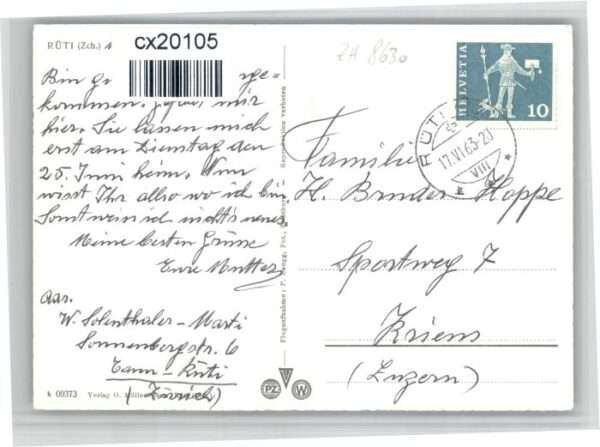 RÜTI (Zch.) A
cx20105
ZH 8630
HELVETIA
10
RÜTI
17.VI.63-20
VIII
Bin g
kommen. mir
hier. Sie lassen mich
erst am Dienstag den
25. Juni heim. Nun
wisst Ihr also wo ich bin
Sonst weiss ich nichts neues
Meine besten Grüsse
Eure Mutter
Adr.
W. Solenthaler-Marti
Sonnenbergstr. 6
Tann-Rüti
(Zürich)
k 09373 Verlag O.
Flugaufnahme: P.
Reproduktion verboten
PZ
W
Familie
H. Bruder-Hoppe
Sportweg 7
Kriens
(Luzern)